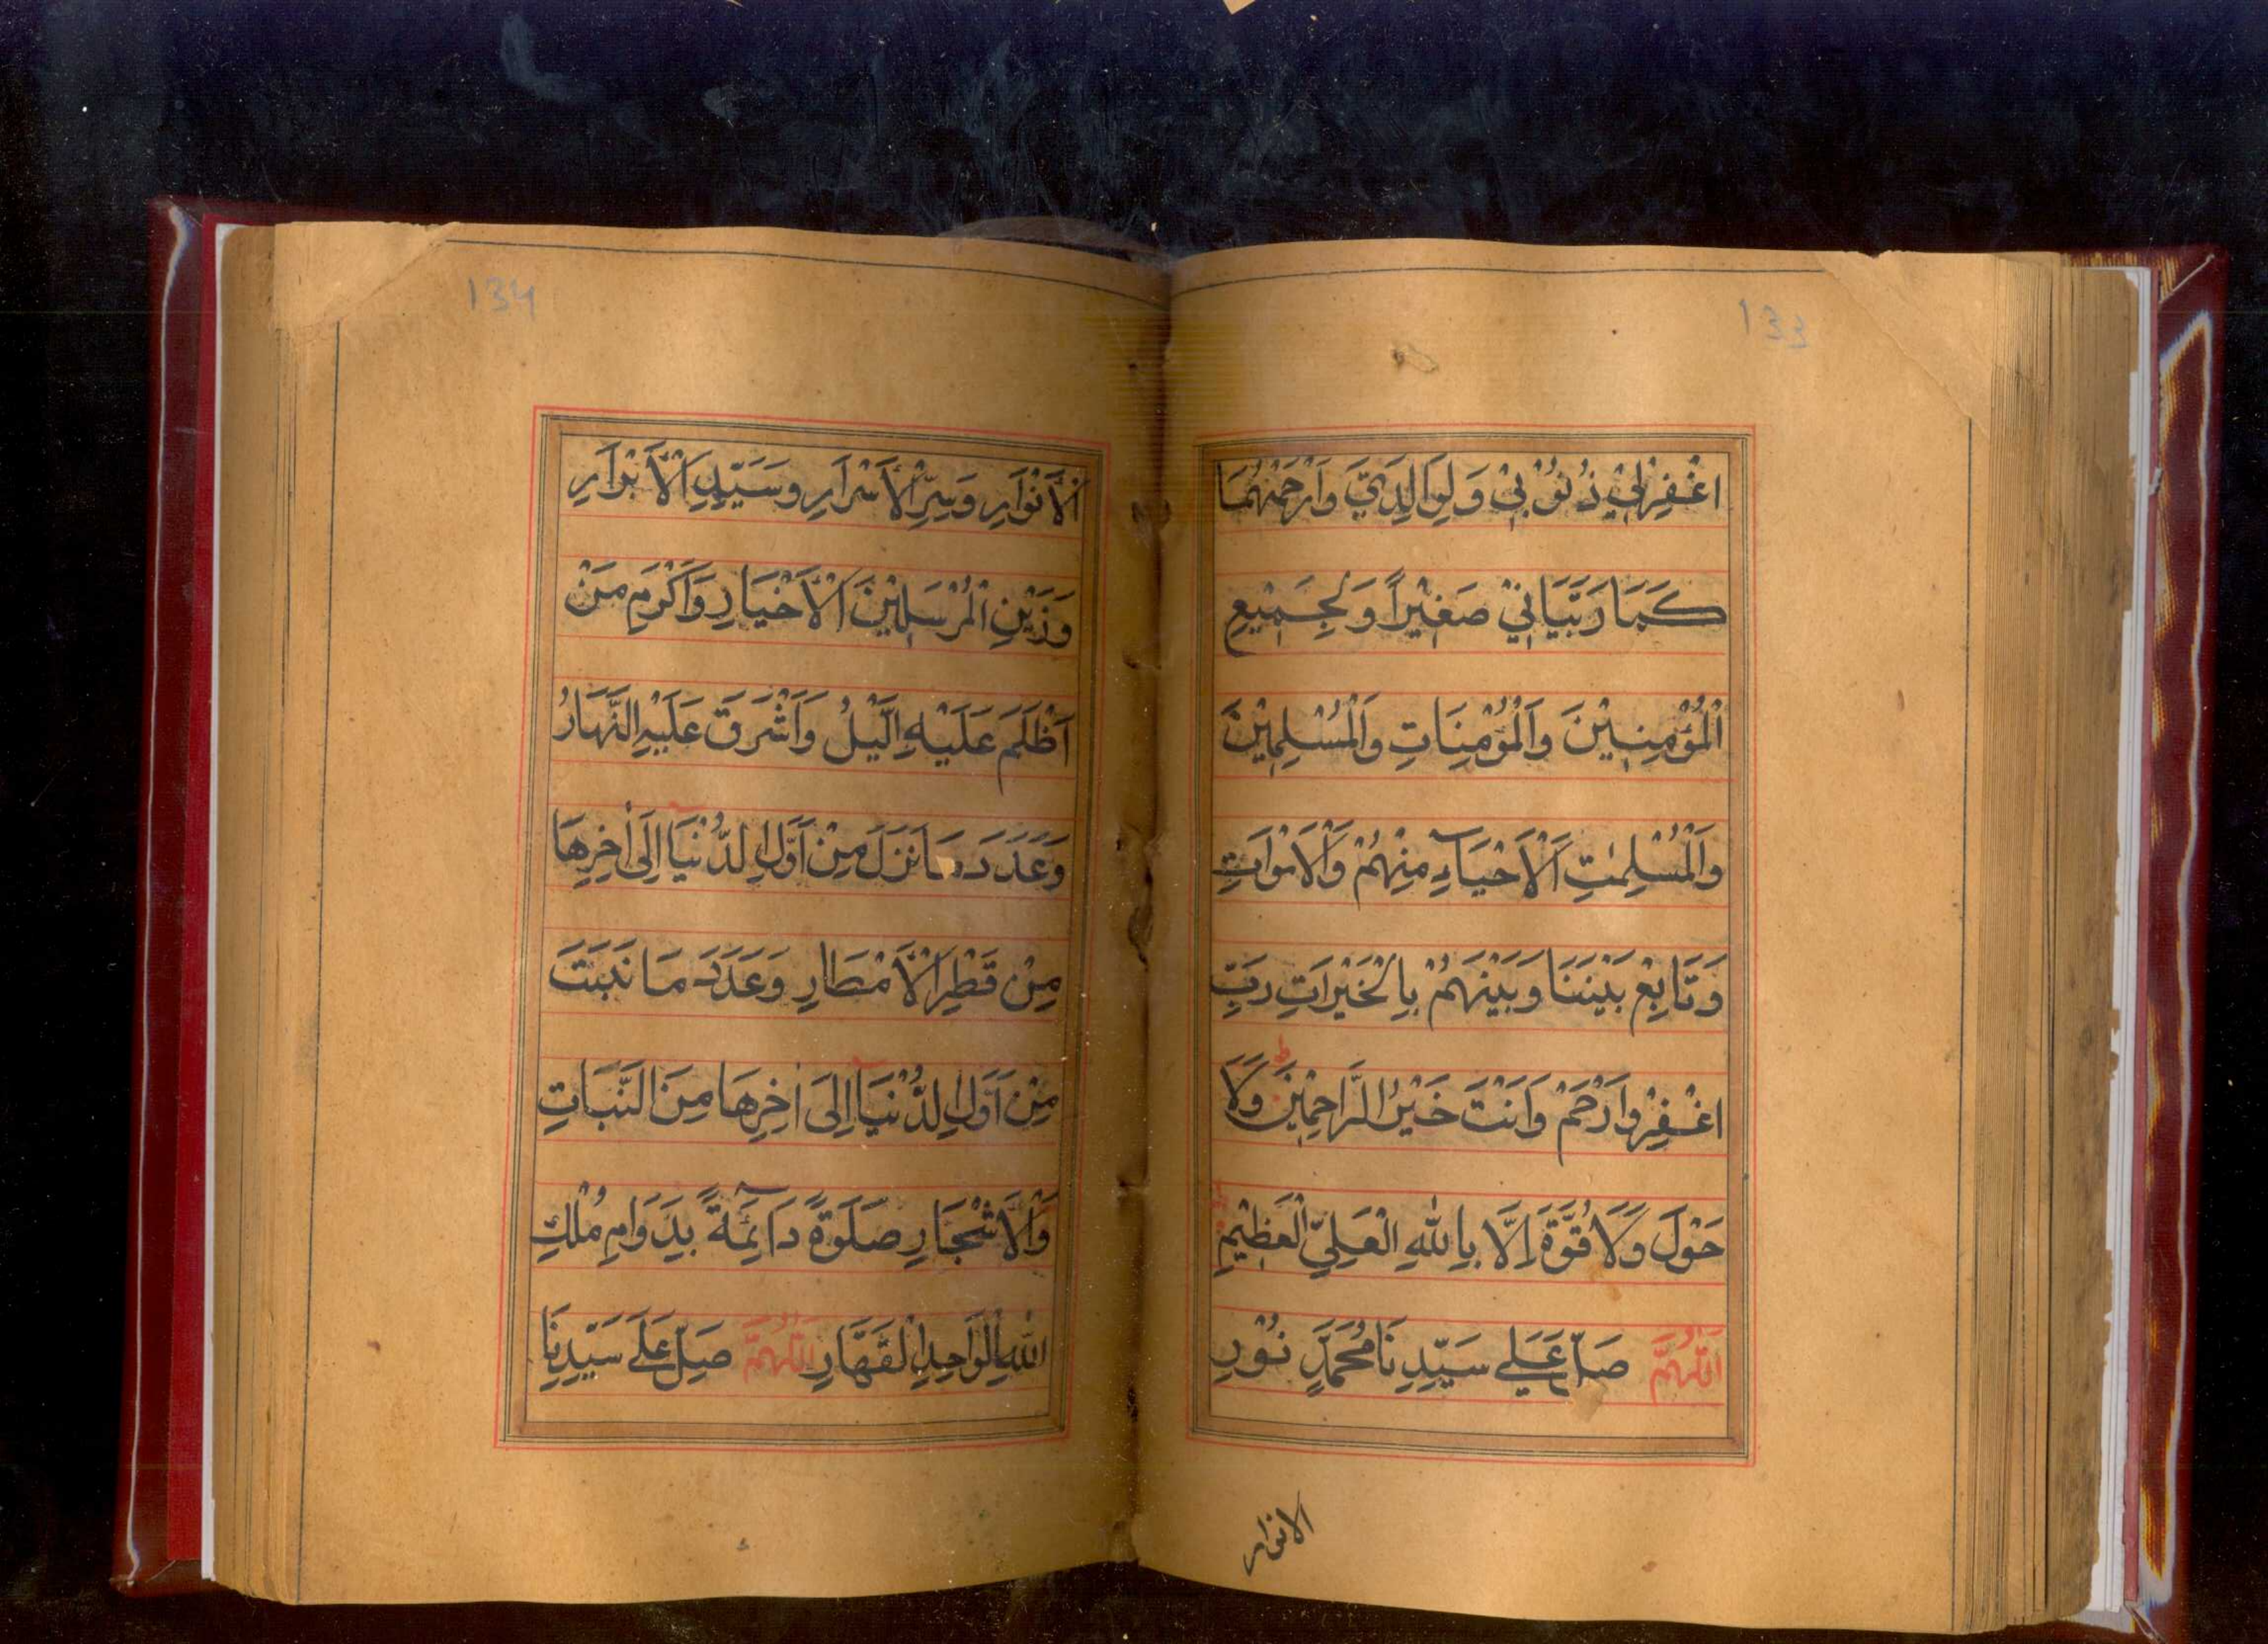 133
اغْفِرْلِيْ ذُنُوْبِيْ وَلِوَالِدَيَّ وَارْحَمْهُمَا
كَمَا رَبَّيَانِيْ صَغِيْرًا وَلِجَمِيْعِ
الْمُؤْمِنِيْنَ وَالْمُؤْمِنَاتِ وَالْمُسْلِمِيْنَ
وَالْمُسْلِمٰتِ اَلْاَحْيَآءِ مِنْهُمْ وَالْاَمْوَاتِ
وَتَابِعْ بَيْنَنَا وَبَيْنَهُمْ بِالْخَيْرَاتِ رَبِّ
اغْفِرْ وَارْحَمْ وَاَنْتَ خَيْرُ الرَّاحِمِيْنَ ط وَلَا
حَوْلَ وَلَا قُوَّةَ اِلَّا بِاللّٰهِ الْعَلِيِّ الْعَظِيْمِ
اَللّٰهُمَّ صَلِّ عَلٰي سَيِّدِنَا مُحَمَّدٍ نُوْرِ
الانوار
134
الْاَنْوَارِ وَسِرِّ الْاَسْرَارِ وَسَيِّدِ الْاَبْرَارِ
وَزَيْنِ الْمُرْسَلِيْنَ الْاَخْيَارِ وَاَكْرَمِ مَنْ
اَظْلَمَ عَلَيْهِ الَّيْلُ وَاَشْرَقَ عَلَيْهِ النَّهَارُ
وَعَدَدَ مَا نَزَلَ مِنْ اَوَّلِ الدُّنْيَآ اِلٰى اٰخِرِهَا
مِنْ قَطْرِ الْاَمْطَارِ وَعَدَدَ مَا نَبَتَتْ
مِنْ اَوَّلِ الدُّنْيَآ اِلٰى اٰخِرِهَا مِنَ النَّبَاتِ
وَالْاَشْجَارِ صَلٰوةً دَآئِمَةً بِدَوَامِ مُلْكِ
اللّٰهِ الْوَاحِدِ الْقَهَّارِ اَللّٰهُمَّ صَلِّ عَلٰى سَيِّدِنَا